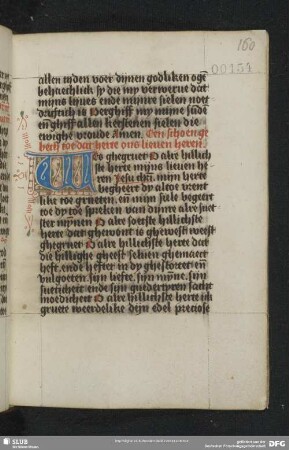 160
00154
allen tyden voer dynen godliken oge
behaechlick sy die my verwerue dat
myns lyues ende mynre sielen not
drufticheit is Verghiff my myne sude
en ghyff allen kerstenen sielen die
ewighe vroude Amen. Een schoen ge
bet totdat herte ons lieuen heren
Wes ghegruet O alre hillich
ste herte myns lieuen he
ren Jesu christi, myn herte
begheert dy altoe vrent
like toe grueten, en myn siele begeert
toe dy toe spreken van dynre alre suet
ster mynen O alre soetste hillichste
herte dat ghewont is ghewest weest
ghegruet O alre hillichste herte dat
die hillighe gheest seluen ghemaect
heft, ende hefter in dy ghestortet en
vulgoeten syn liefte, syn mynne, syn
sueticheit ende syn guedertyren sacht
moedicheit O alre hillichste herte ick
gruete weerdelike dyn edel preciose
SLUB
DFG